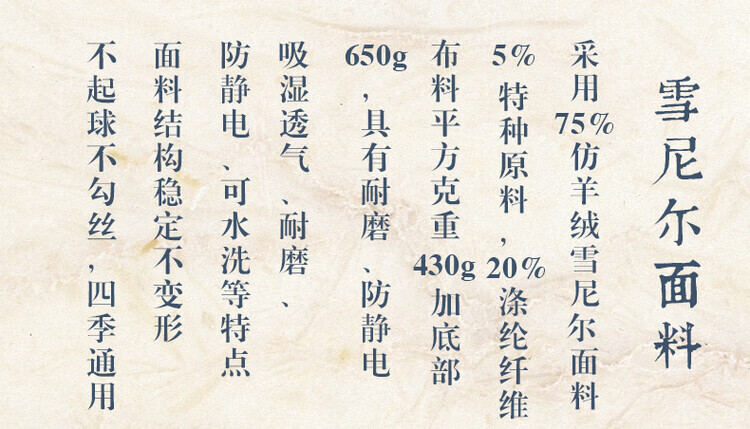 雪尼尔面料
采用75%仿羊绒雪尼尔面料
5%特种原料，20%涤纶纤维
布料平方克重430g加底部
650g，具有耐磨、防静电
吸湿透气、耐磨、
防静电、可水洗等特点
面料结构稳定不变形
不起球不勾丝，四季通用